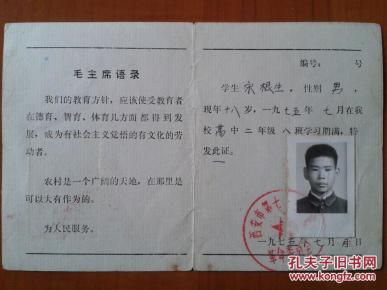 毛主席语录
我们的教育方针，应该使受教育者
在德育、智育、体育几方面都得到发
展，成为有社会主义觉悟的有文化的劳
动者。
农村是一个广阔的天地，在那里是
可以大有作为的。
为人民服务。
编号： 号
学生宋根生，性别男，
现年十八岁，一九七五年 七月在我
校高中二年级八班学习期满，特
发此证。
西安市第七
一九七五年七月 日
孔夫子旧书网